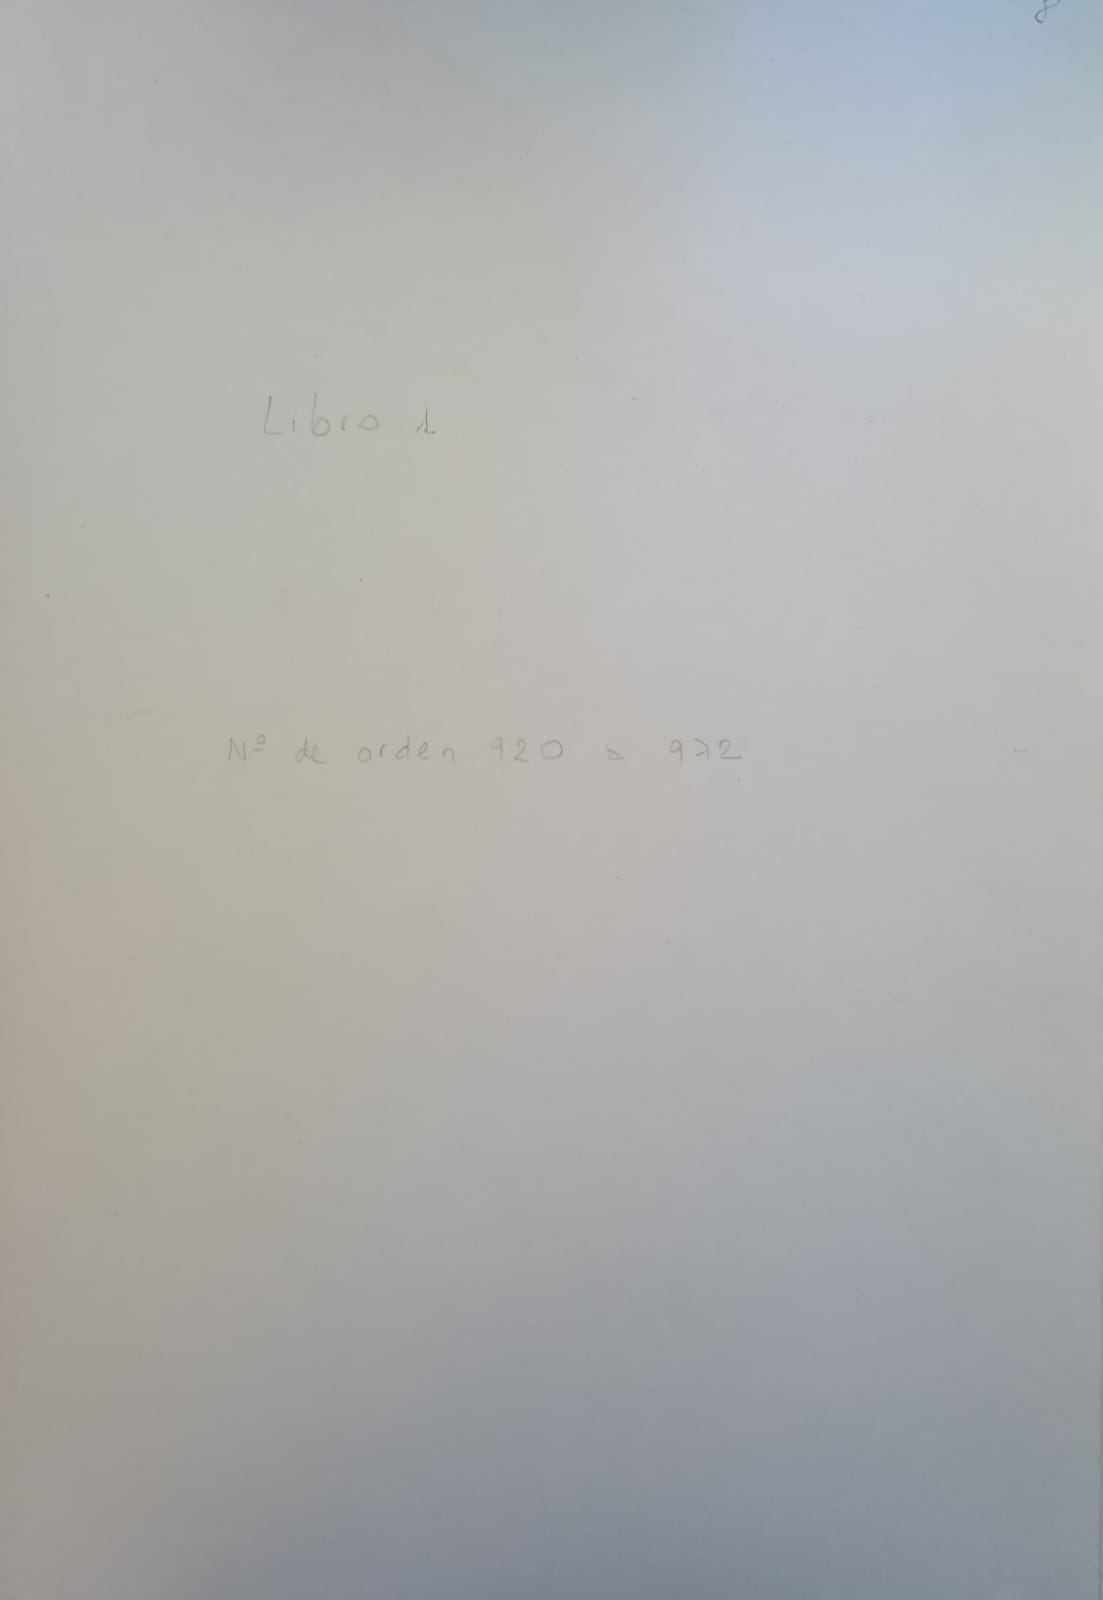 8
Libro 1
Nº de orden 920 a 972